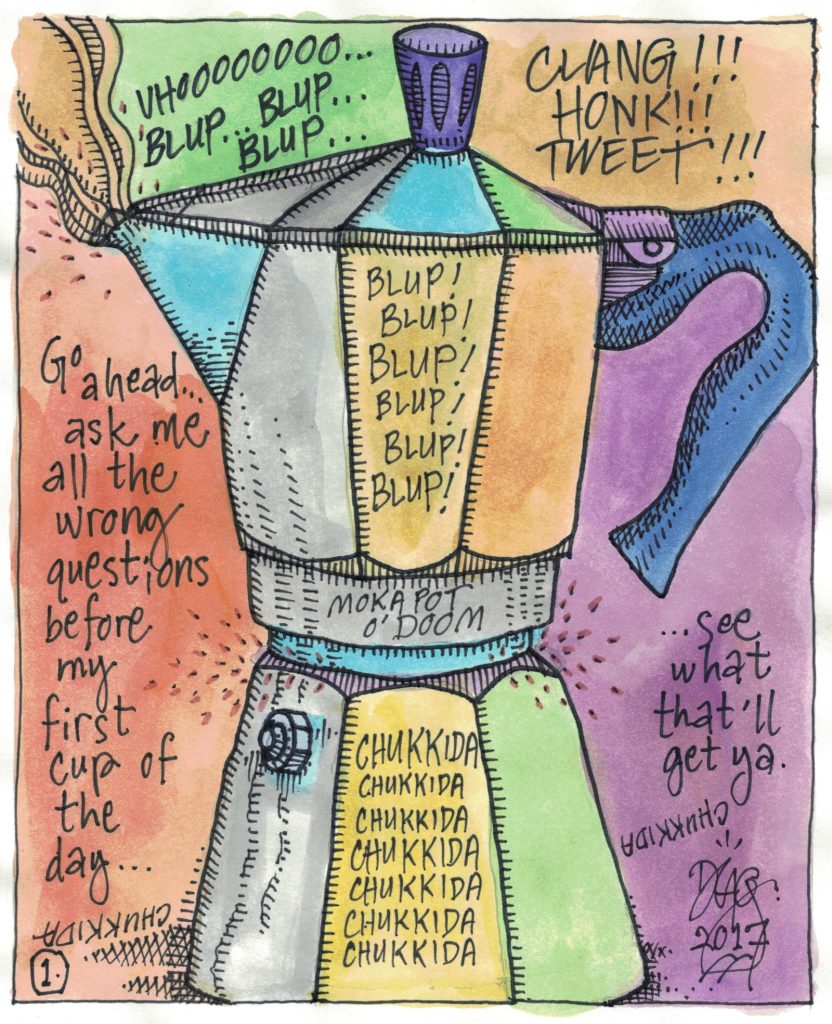 VHOOOOOOOO...
BLUP... BLUP...
BLUP...
CLANG!!!
HONK!!!
TWEET!!!
BLUP!
BLUP!
BLUP!
BLUP!
BLUP!
BLUP!
Go
ahead...
ask me
all the
wrong
questions
before
my
first
cup of
the
day...
MOKA POT
O'DOOM
...see
what
that'll
get ya.
CHUKKIDA
CHUKKIDA
CHUKKIDA
CHUKKIDA
CHUKKIDA
CHUKKIDA
CHUKKIDA
CHUKKIDA
CHUKKIDA
2017
1.